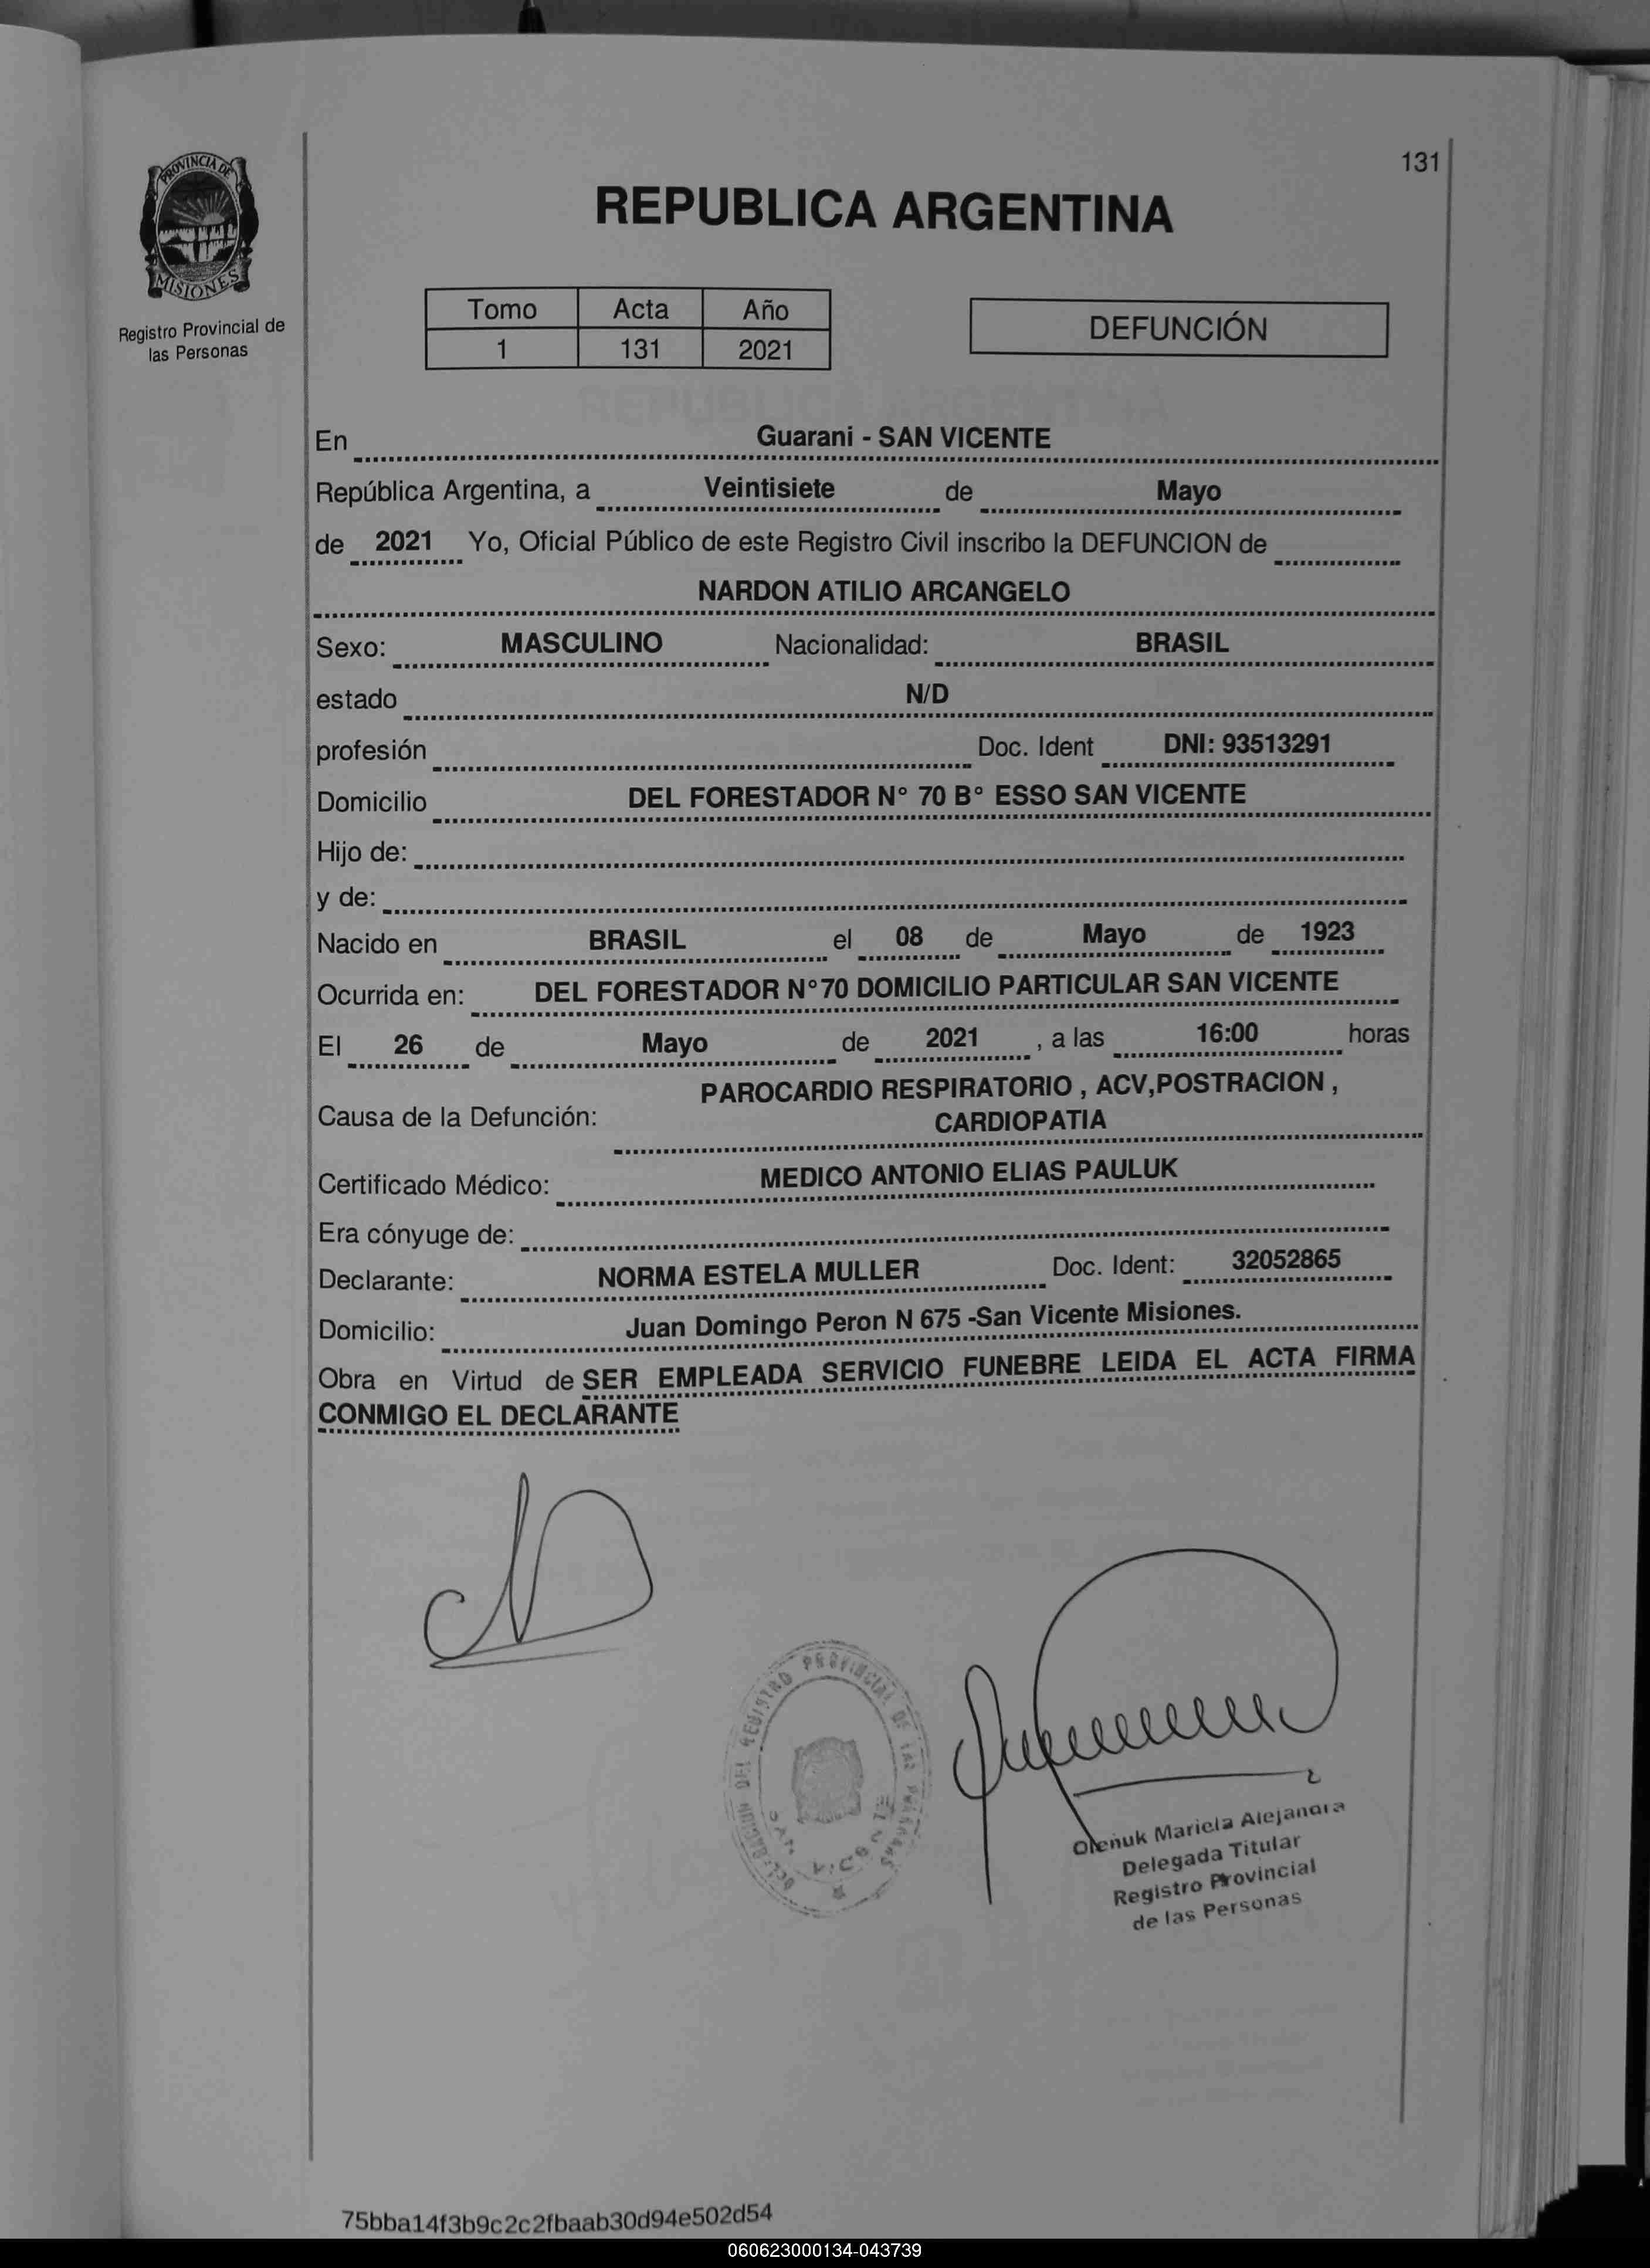 131
PROVINCIA DE
MISIONES
Registro Provincial de
las Personas
REPUBLICA ARGENTINA
Tomo Acta Año
1 131 2021
DEFUNCIÓN
En Guarani - SAN VICENTE
República Argentina, a Veintisiete de Mayo
de 2021 Yo, Oficial Público de este Registro Civil inscribo la DEFUNCION de
NARDON ATILIO ARCANGELO
Sexo: MASCULINO Nacionalidad: BRASIL
estado N/D
profesión Doc. Ident DNI: 93513291
Domicilio DEL FORESTADOR N° 70 B° ESSO SAN VICENTE
Hijo de:
y de:
Nacido en BRASIL el 08 de Mayo de 1923
Ocurrida en: DEL FORESTADOR N°70 DOMICILIO PARTICULAR SAN VICENTE
El 26 de Mayo de 2021 , a las 16:00 horas
PAROCARDIO RESPIRATORIO , ACV,POSTRACION ,
Causa de la Defunción: CARDIOPATIA
Certificado Médico: MEDICO ANTONIO ELIAS PAULUK
Era cónyuge de:
Declarante: NORMA ESTELA MULLER Doc. Ident: 32052865
Domicilio: Juan Domingo Peron N 675 -San Vicente Misiones.
Obra en Virtud de SER EMPLEADA SERVICIO FUNEBRE LEIDA EL ACTA FIRMA
CONMIGO EL DECLARANTE
DELEGACION DEL REGISTRO PROVINCIAL DE LAS PERSONAS
SAN VICENTE
Olenuk Mariela Alejandra
Delegada Titular
Registro Provincial
de las Personas
75bba14f3b9c2c2fbaab30d94e502d54
060623000134-043739